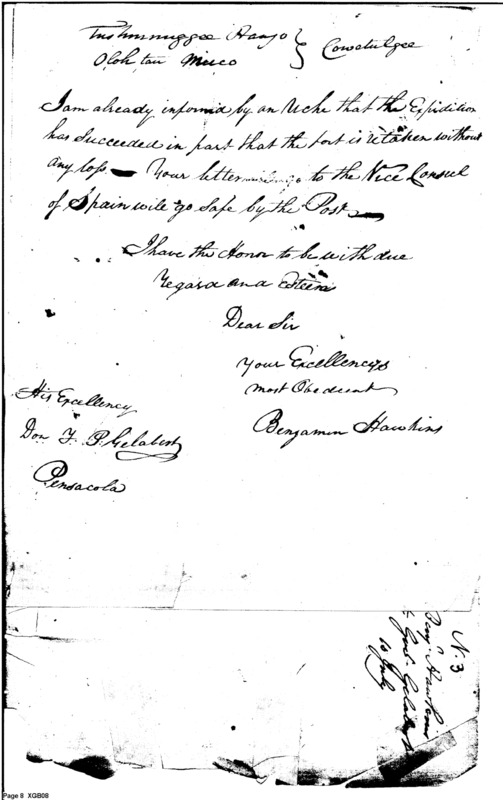 Tushunnuggee Haujo } Cowetulgee
Olohtau Mico
I am already informed by an Uche that the Expedition
has Succeeded in part that the fort is retaken without
any loss. — Your letter to the Vice Consul
of Spain will go Safe by the Post —
I have the Honor to be with due
regard and Esteem
Dear Sir
Your Excellencys
most Obedient
Benjamin Hawkins
His Excellency
Don F. P. Gelabert
Pensacola
N. 3
Benj. Hawkins
Gov. Gelabert
10 July
Page 8 XGB08